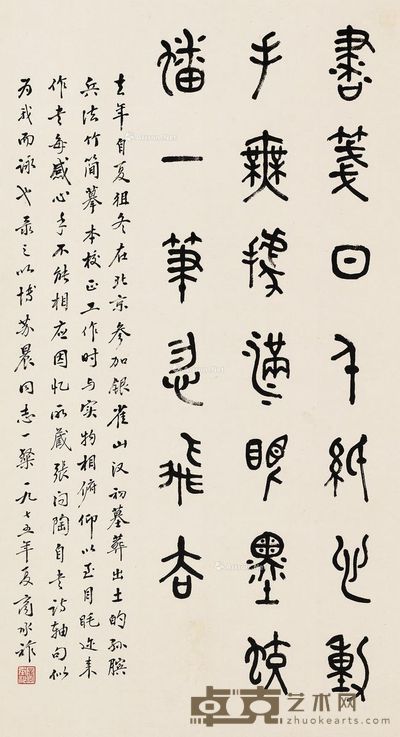 書箋日千紙心動
手無據滿眼墨蛟
蟠一筆忽飛去
去年自夏徂冬在北京參加银雀山汉初墓葬出土的孙膑
兵法竹简摹本校正工作时与实物相俯仰以至目眊迩来
作书每感心手不能相应因忆所藏张问陶自书诗轴句似
为我而咏也录之以博苏晨同志一粲一九七五年夏商承祚
卓克艺术网
zhuokearts.com